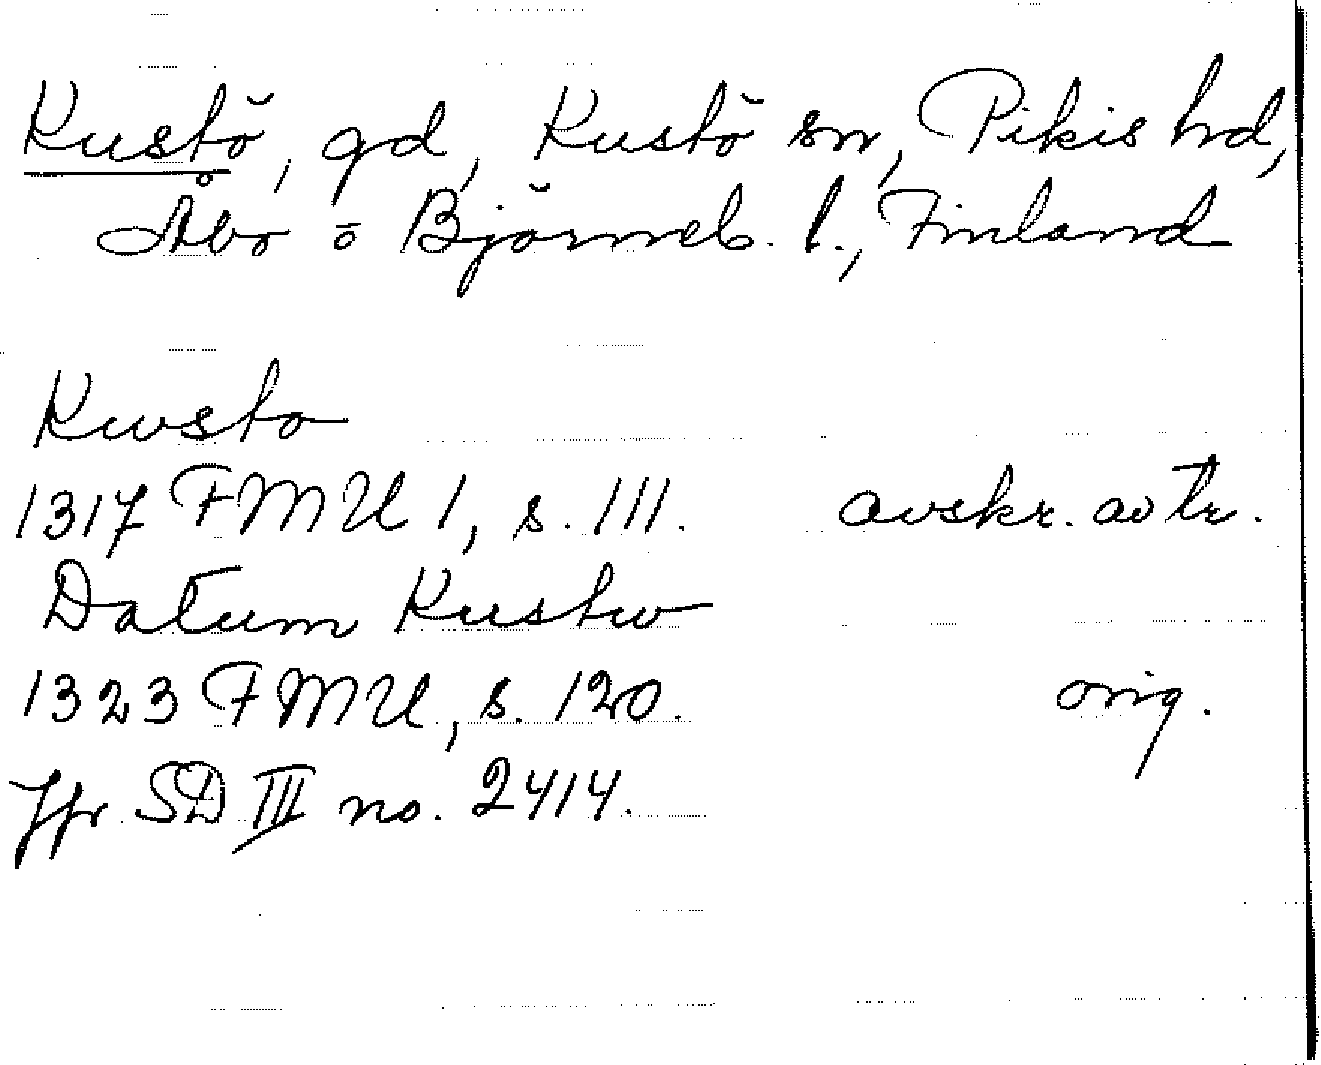 Kustö, gd, Kustö sn, Pikis hd,
Åbo o Björneb. l., Finland
Kwsto
1317 FMU 1, s. 111. avskr. av tr.
Datum Kustw
1323 FMU, s. 120. orig.
Jfr SD III no. 2414.